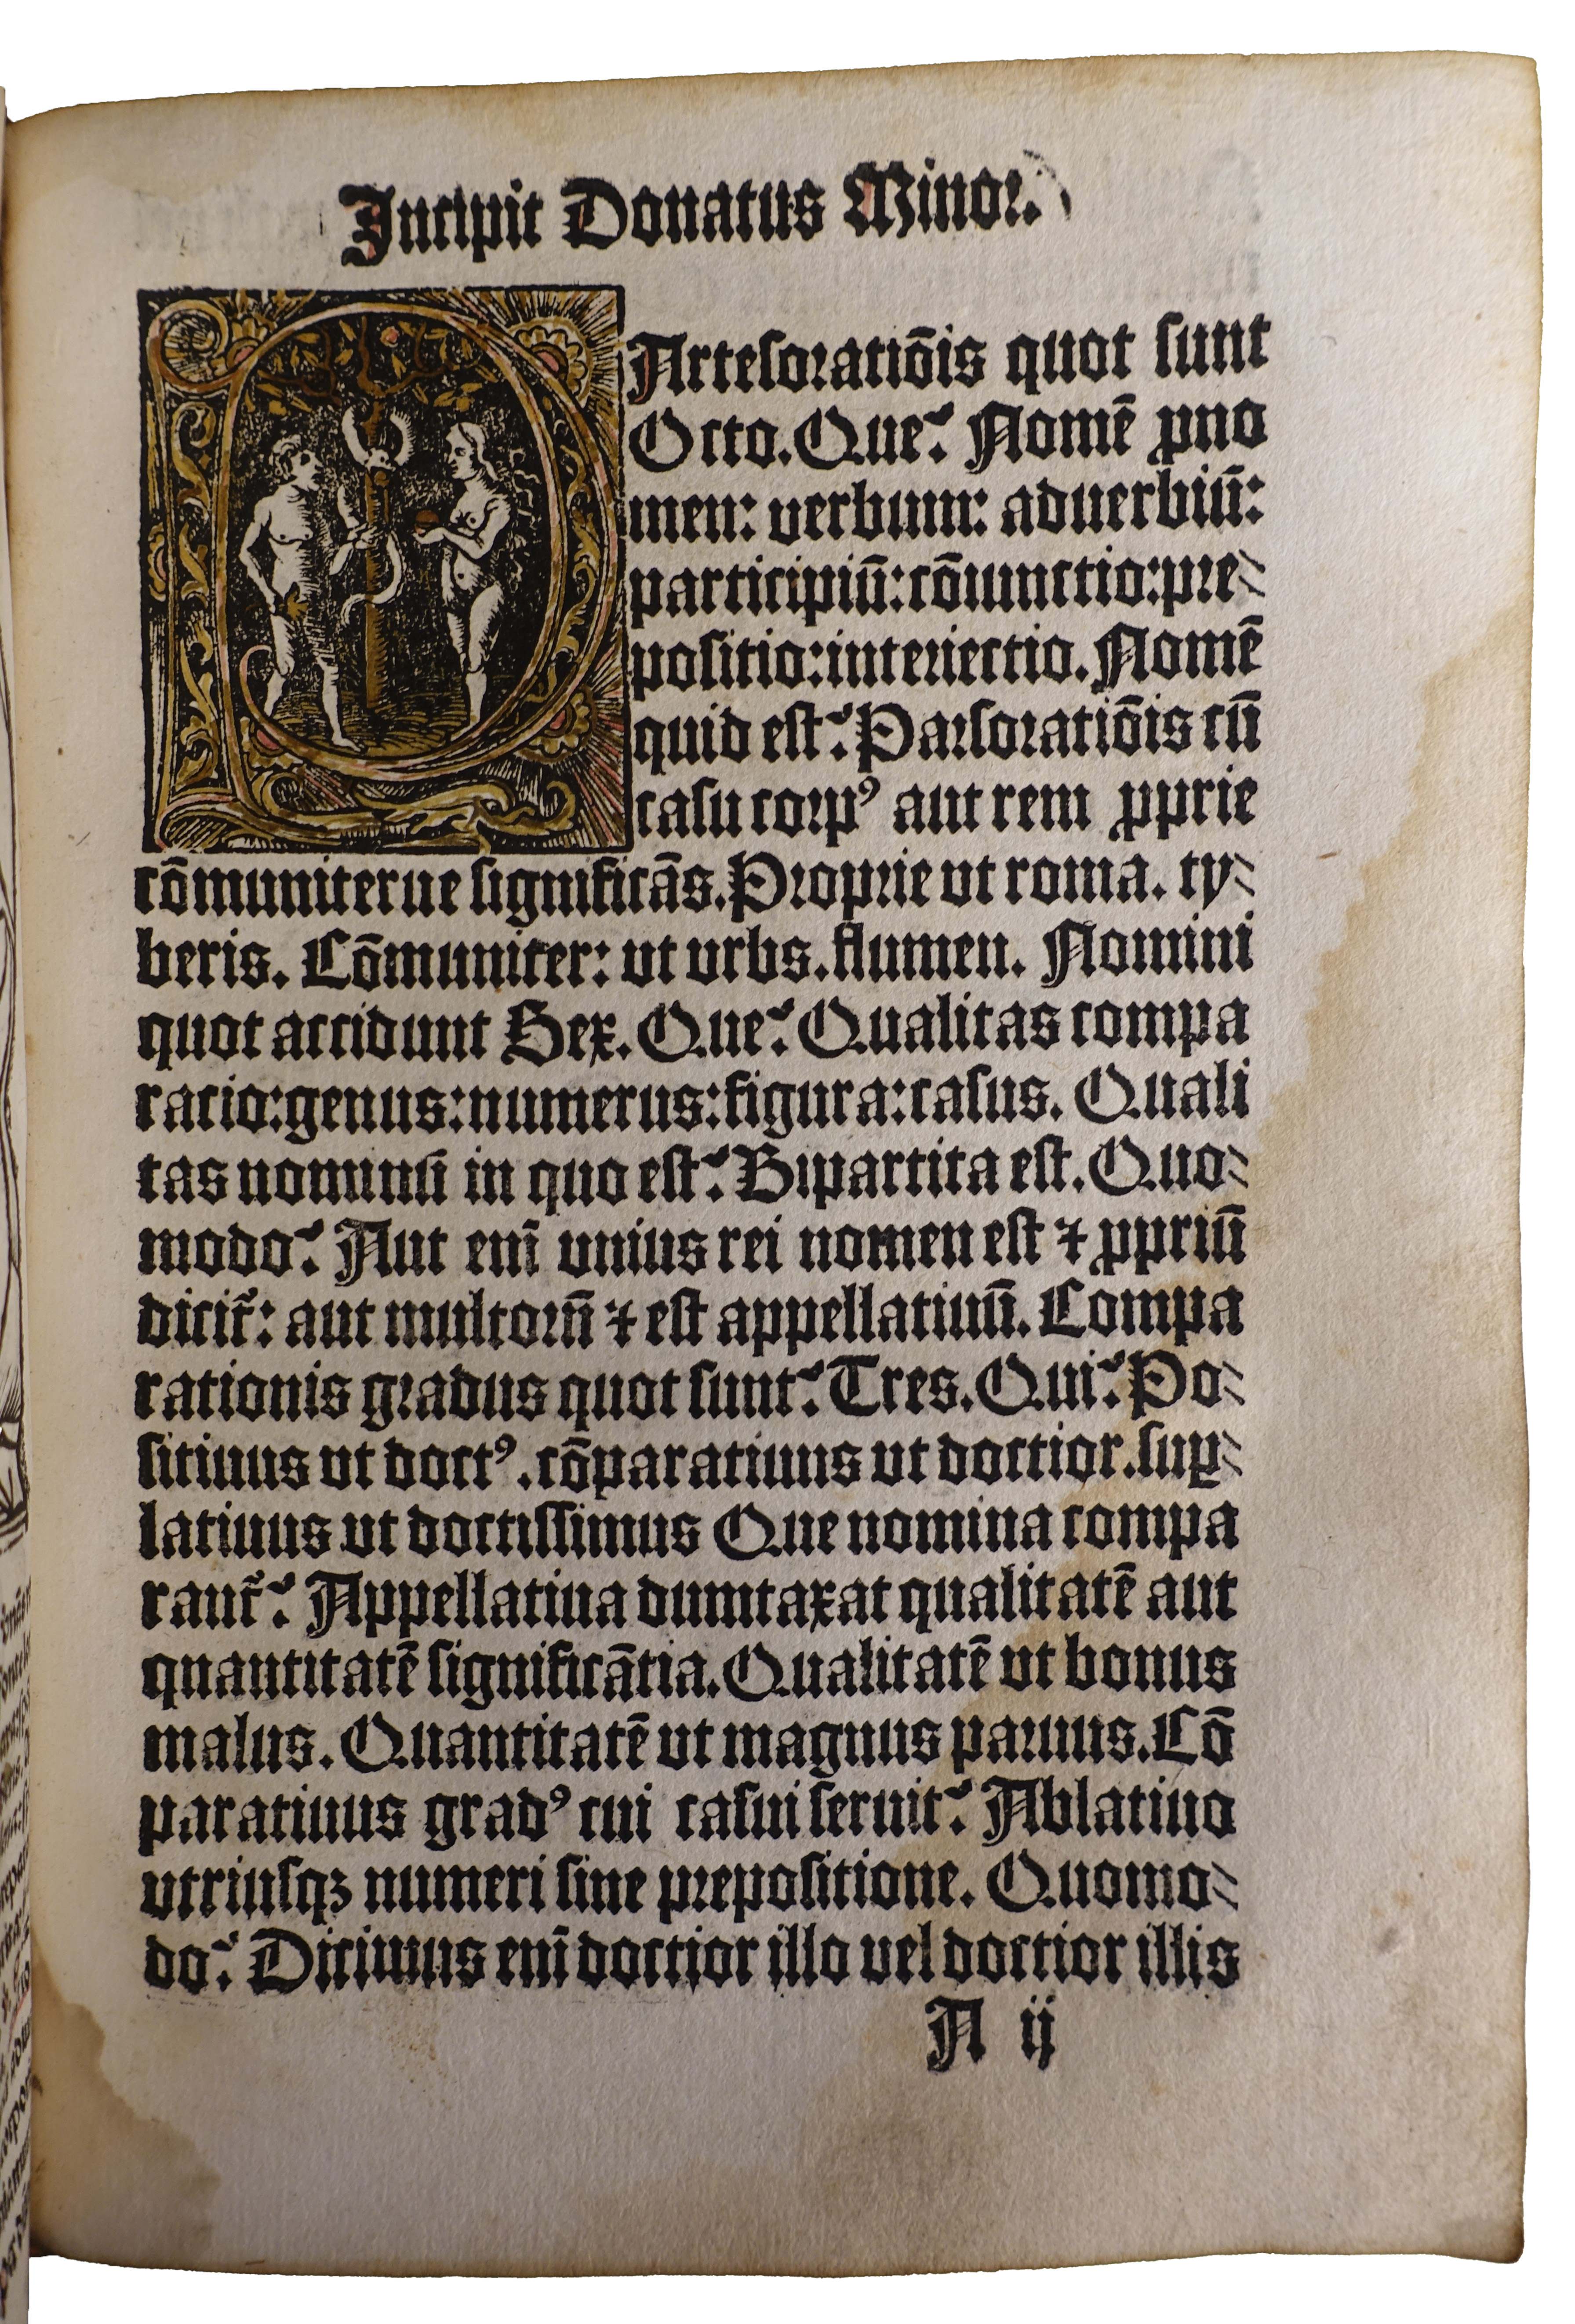 Incipit Donatus Minor.
PArtesoratiõis quot sunt
Octo. Que? Nomẽ ꝓno
men: verbum: aduerbiũ:
participiũ: cõiunctio: pre-
positio: interiectio. Nomẽ
quid est? Parsoratiõis cũ
casu corpꝰ aut rem ꝓprie
cõmuniterue significãs. Proprie vt roma. ty-
beris. Cõmuniter: vt vrbs. flumen. Nomini
quot accidunt Sex. Que? Qualitas compa
racio: genus: numerus: figura: casus. Quali
tas nominũ in quo est? Bipartita est. Quo-
modo? Aut enĩ vnius rei nomen est ⁊ ꝓpriũ
dicit᷑: aut multorũ ⁊ est appellatiuũ. Compa
rationis gradus quot sunt? Tres. Qui? Po-
sitiuus vt doctꝰ. cõparatiuus vt doctior. suꝑ-
latiuus vt doctissimus Que nomina compa
rant᷑? Appellatiua dumtaxat qualitatẽ aut
quantitatẽ significãtia. Qualitatẽ vt bonus
malus. Quantitatẽ vt magnus paruus. Cõ
paratiuus gradꝰ cui casui seruit? Ablatiuo
vtriusqꝫ numeri sine prepositione. Quomo-
do? Dicimus enĩ doctior illo vel doctior illis
A ij